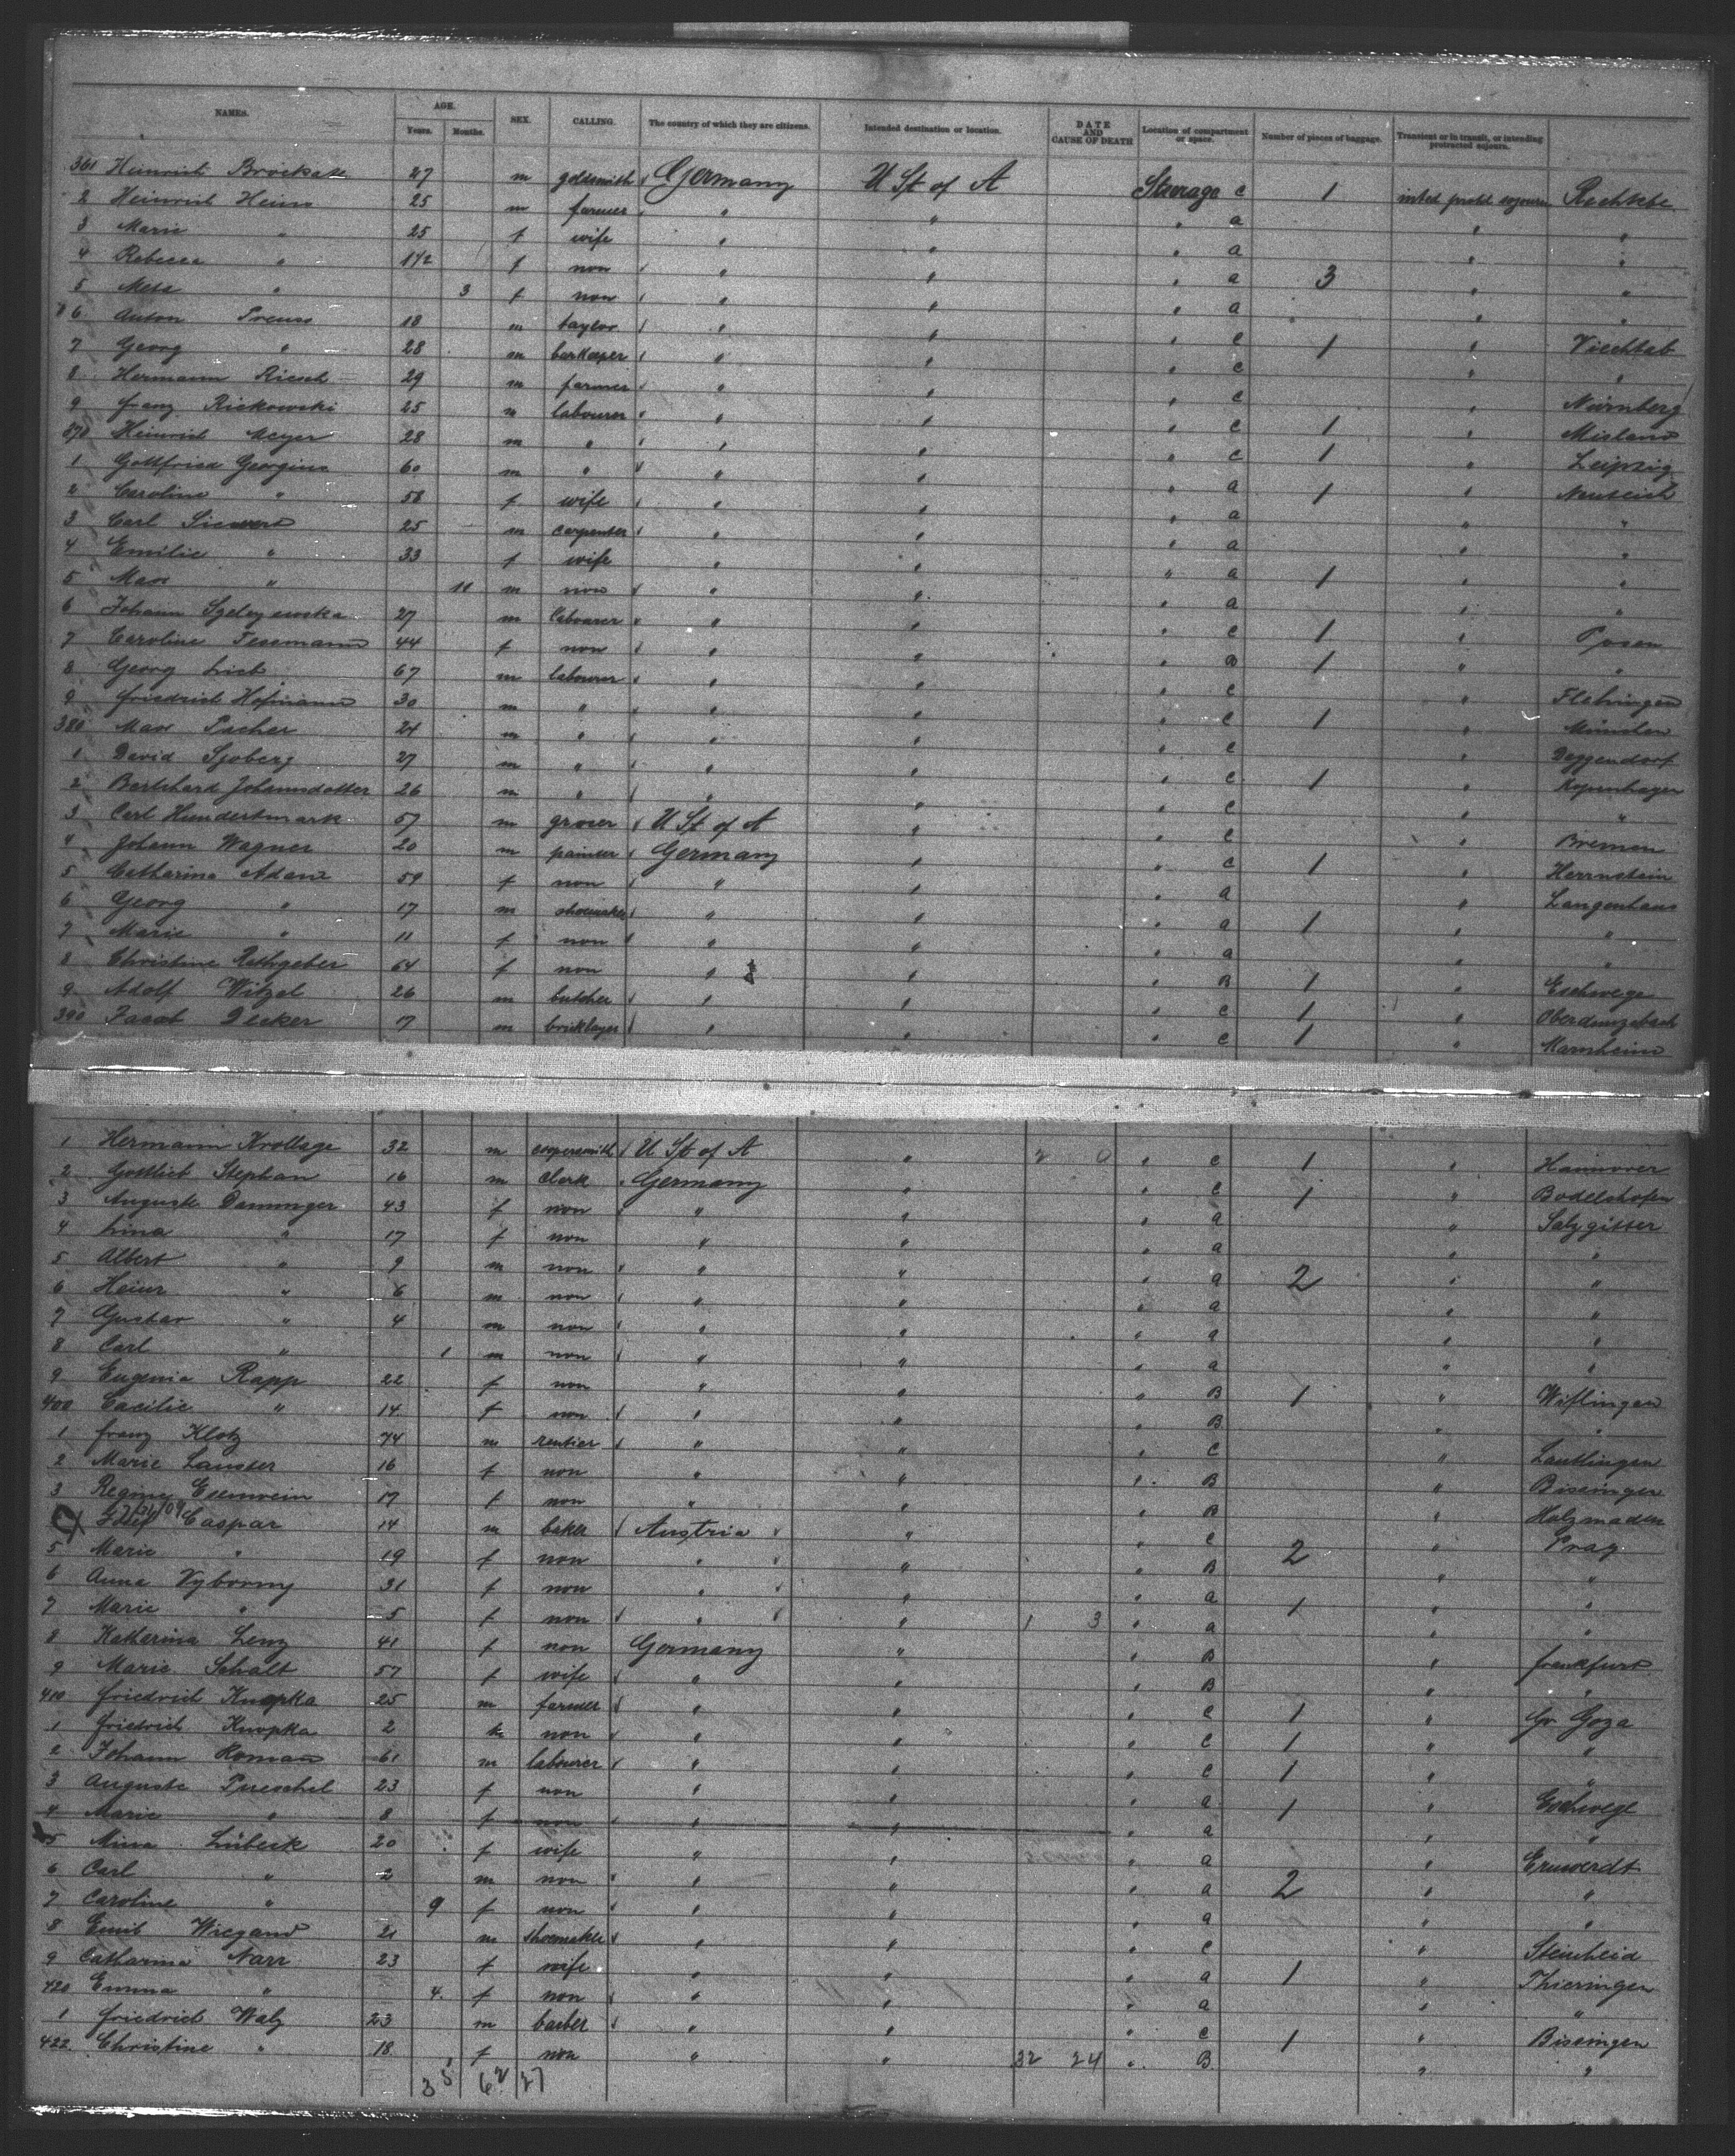 NAMES. AGE. Years. Months. SEX. CALLING. The country of which they are citizens. Intended destination or location. DATE AND CAUSE OF DEATH Location of compartment or space. Number of pieces of baggage. Transient or in transit, or intending protracted sojourn.
361 Heinrich 27 m goldsmith Germany U St of A Steerage c 1 intend protd sojourn
2 Heinrich Heins 25 m farmer " " " a " "
3 Marie " 25 f wife " " " a " "
4 Rebecca " 1 1/2 f non " " " a 3 " "
5 Meta " 3 f non " " " a " "
6 Anton Preuss 18 m taylor " " " c 1 "
7 Georg " 28 m barkeeper " " " c " "
8 Hermann Riesch 29 m farmer " " " c " Nürnberg
9 Franz Rickowski 25 m labourer " " " c 1 "
370 Heinrich Meyer 28 m " " " " c 1 " Leipzig
1 Gottfried Georgins 60 m " " " " a 1 " Neuteich
2 Caroline " 58 f wife " " " a " "
3 Carl Siewert 25 m carpenter " " " a " "
4 Emilie " 33 f wife " " " a 1 " "
5 Max " 11 m non " " " a " "
6 Johann 27 m labourer " " " c 1 " Posen
7 Caroline Tessmann 44 f non " " " B 1 " "
8 Georg Lieb 67 m labourer " " " c " Flehingen
9 Friedrich Hofmann 30 m " " " " c 1 " München
380 Max Pacher 24 m " " " " c " Deggendorf
1 David Sjoberg 27 m " " " " c 1 " Kopenhagen
2 Johannsdotter 26 m " " " " c " "
3 Carl Hundertmark 57 m grocer U St of A " " c " Bremen
4 Johann Wagner 20 m painter Germany " " c 1 " Herrnstein
5 Catharina Adam 59 f non " " " a " Langenhaus
6 Georg " 17 m shoemaker " " " a 1 " "
7 Marie " 11 f non " " " a " "
8 Christine Rethgeber 64 f non " " " B 1 " Eschwege
9 Adolf Witzel 26 m butcher " " " c 1 " Oberdünzebach
390 Jacob Decker 17 m bricklayer " " " c 1 " Marnheim
1 Hermann Krollage 32 m coopersmith U St of A " 2 0 " c 1 " Hannover
2 Gottlieb Stephan 16 m clerk Germany " " c 1 " Bodelshofen
3 Auguste Damminger 43 f non " " " a " Salzgitter
4 Lina " 17 f non " " " a " "
5 Albert " 9 m non " " " a 2 " "
6 Heinr " 6 m non " " " a " "
7 Gustav " 4 m non " " " a " "
8 Carl " 1 m non " " " a " "
9 Eugenia Rapp 22 f non " " " B 1 " Wiflingen
400 Cacilie " 14 f non " " " B " "
1 Franz Klotz 74 m rentier " " " c " Lautlingen
2 Marie Lauster 16 f non " " " B " Bissingen
3 Regine Esenwein 17 f non " " " B " Holzmaden
Caspar 14 m baker Austria " " c 2 " Prag
5 Marie " 19 f non " " " B " "
6 Anna Vyborny 31 f non " " " a 1 " "
7 Marie " 5 f non " " 1 3 " a " "
8 Katharina Lenz 41 f non Germany " " B " Frankfurt
9 Marie Schalt 57 f wife " " " B " "
410 Friedrich Knopka 25 m farmer " " " c 1 " Gr Goza
1 Friedrich Knopka 2 m non " " " c 1 " "
2 Johann Roman 61 m labourer " " " c 1 " "
3 Auguste Pueschel 23 f non " " " a 1 " Eschwege
4 Marie " 8 f non " " " a " "
5 Mina Lübeck 20 f wife " " " a "
6 Carl " 2 m non " " " a 2 " "
7 Caroline " 9 f non " " " a " "
8 Emil Wiegand 21 m shoemaker " " " c " Steinheid
9 Catharina Narr 23 f wife " " " a 1 " Thieringen
420 Emma " 4 f non " " " a " "
1 Friedrich Walz 23 m barber " " " c 1 " Bissingen
422 Christine " 18 f non " " 32 24 " B " "
35 62 27